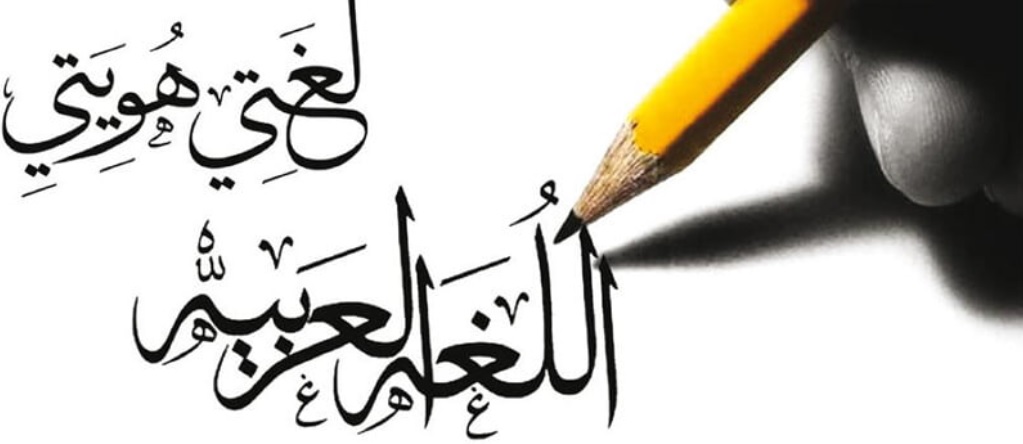 لغتي هويتي
اللغة العربية